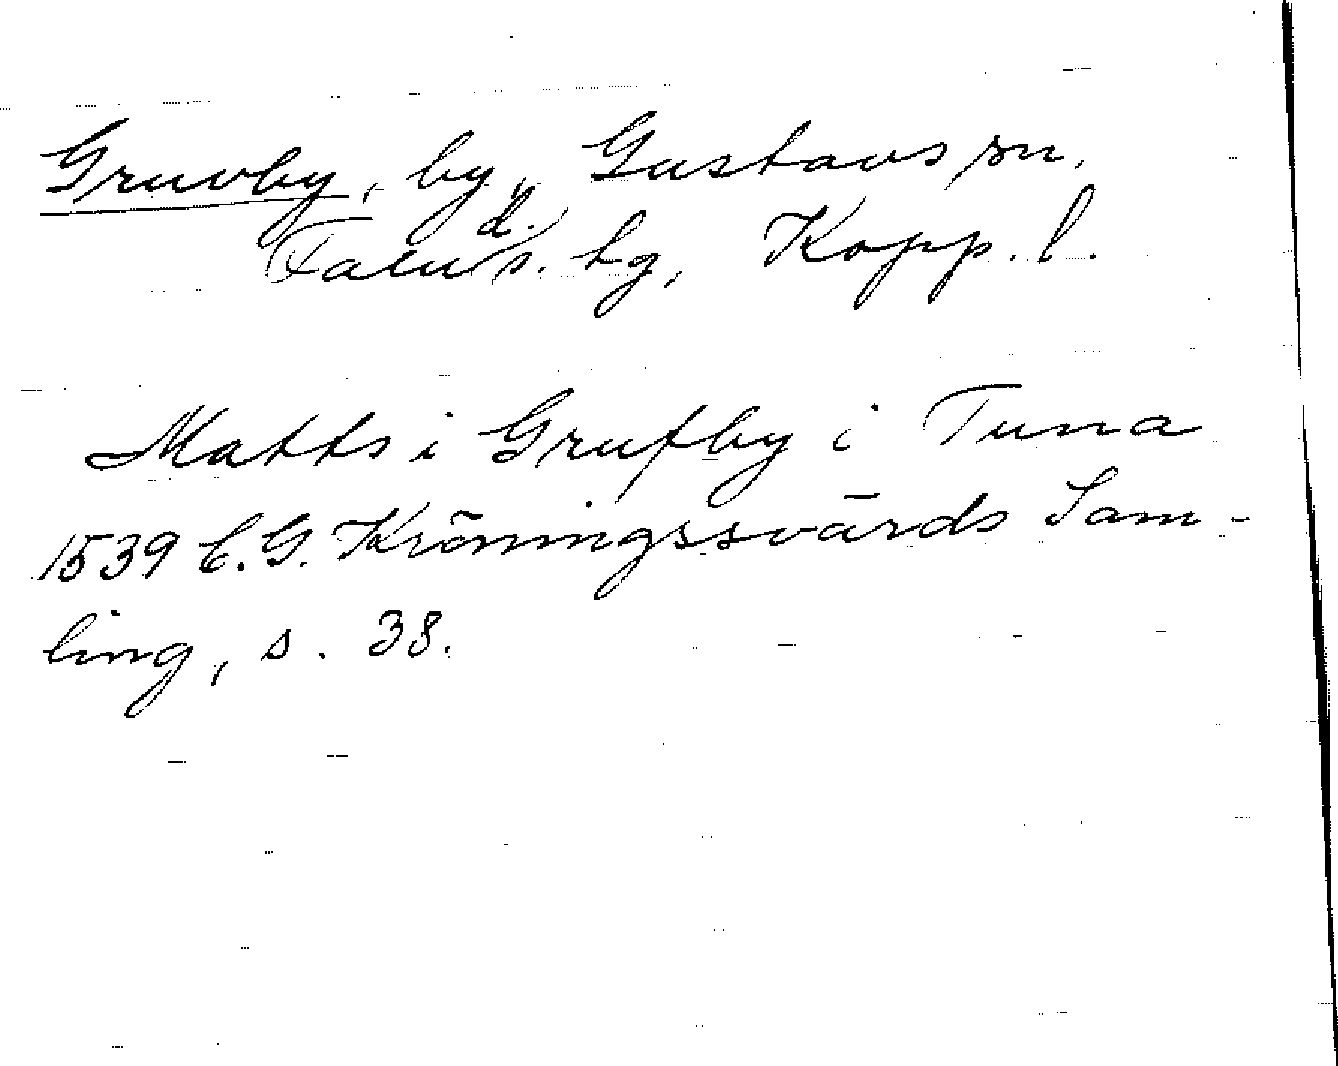 Gruvby, by, Gustavs sn,
Falu s. d. tg, Kopp. l.
Matts i Grufby i Tuna
1539 C.G. Kröningssvärds Sam-
ling, s. 38.